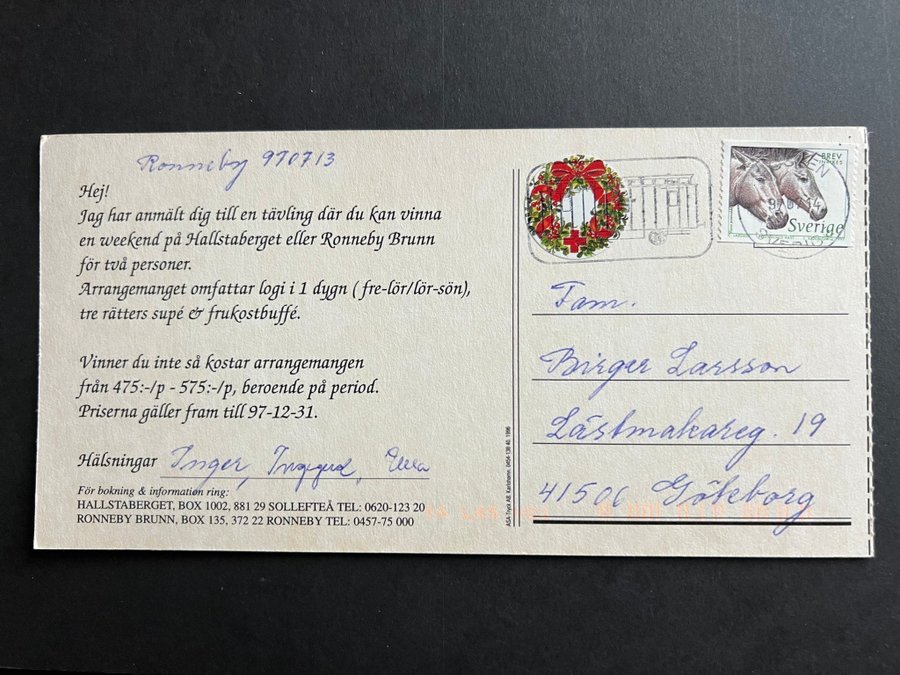 Ronneby 970713
Hej!
Jag har anmält dig till en tävling där du kan vinna
en weekend på Hallstaberget eller Ronneby Brunn
för två personer.
Arrangemanget omfattar logi i 1 dygn ( fre-lör/lör-sön),
tre rätters supé & frukostbuffé.
Vinner du inte så kostar arrangemangen
från 475:-/p - 575:-/p, beroende på period.
Priserna gäller fram till 97-12-31.
Hälsningar Inger, Ingegerd, Ella
För bokning & information ring:
HALLSTABERGET, BOX 1002, 881 29 SOLLEFTEÅ TEL: 0620-123 20
RONNEBY BRUNN, BOX 135, 372 22 RONNEBY TEL: 0457-75 000
BREV
INRIKES
Sverige
Fam.
Birger Larsson
Lästmakareg. 19
41506 Göteborg